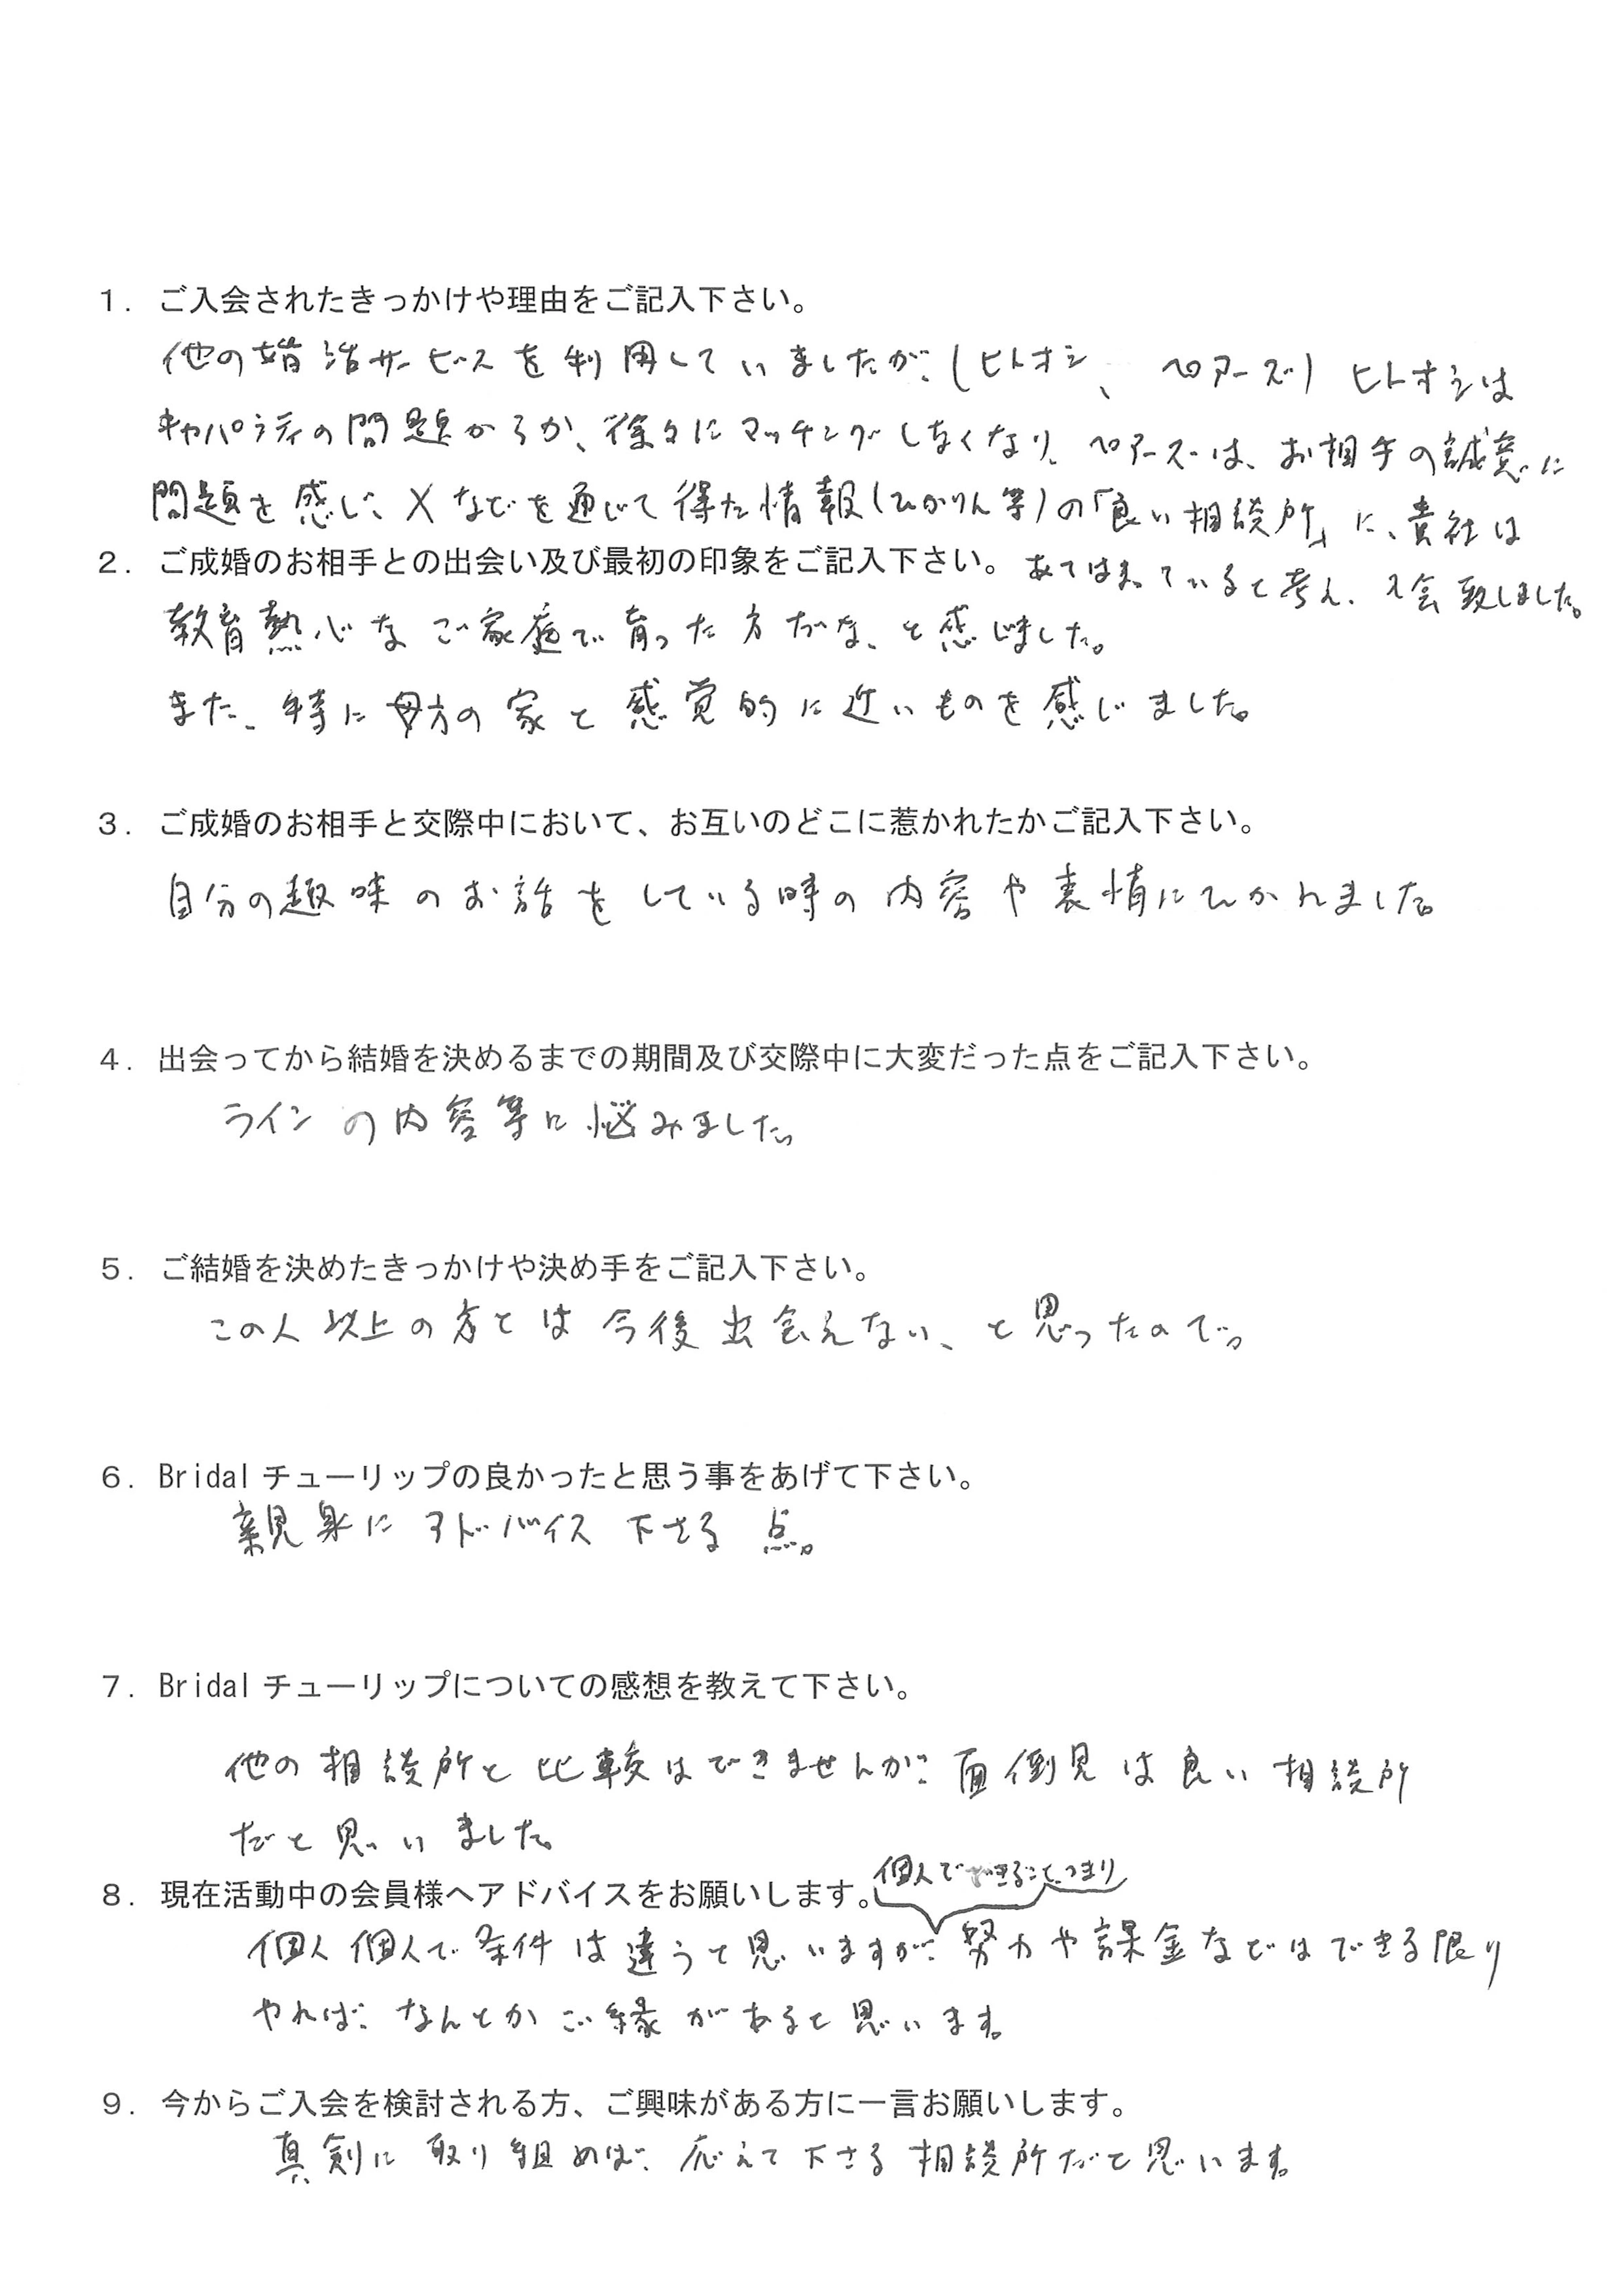 １．ご入会されたきっかけや理由をご記入下さい。
他の婚活サービスを利用していましたが、(ヒトオシ、ペアーズ) ヒトオシは
キャパシティの問題からか、徐々にマッチングしなくなり、ペアーズは、お相手の誠意に
問題を感じ、Xなどを通じて得た情報(ひかりん等)の「良い相談所」に、貴社は
あてはまっていると考え、入会致しました。
２．ご成婚のお相手との出会い及び最初の印象をご記入下さい。
教育熱心なご家庭で育った方だな、と感じました。
また、特に母方の家と感覚的に近いものを感じました。
３．ご成婚のお相手と交際中において、お互いのどこに惹かれたかご記入下さい。
自分の趣味のお話をしている時の内容や表情にひかれました。
４．出会ってから結婚を決めるまでの期間及び交際中に大変だった点をご記入下さい。
ラインの内容等に悩みました。
５．ご結婚を決めたきっかけや決め手をご記入下さい。
この人以上の方とは今後出会えない、と思ったので。
６．Bridal チューリップの良かったと思う事をあげて下さい。
親身にアドバイス下さる点。
７．Bridal チューリップについての感想を教えて下さい。
他の相談所と比較はできませんが、面倒見は良い相談所
だと思いました。
８．現在活動中の会員様へアドバイスをお願いします。
個人でできること、つまり
個人個人で条件は違うと思いますが、努力や課金などはできる限り
やれば、なんとかご縁があると思います。
９．今からご入会を検討される方、ご興味がある方に一言お願いします。
真剣に取り組めば、応えて下さる相談所だと思います。